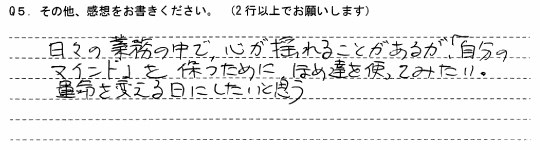 Q5. その他、感想をお書きください。(2行以上でお願いします)
日々の業務の中で、心が揺れることがあるが、「自分の
マインド」を保つために、ほめ達を使ってみたい。
運命を変える日にしたいと思う